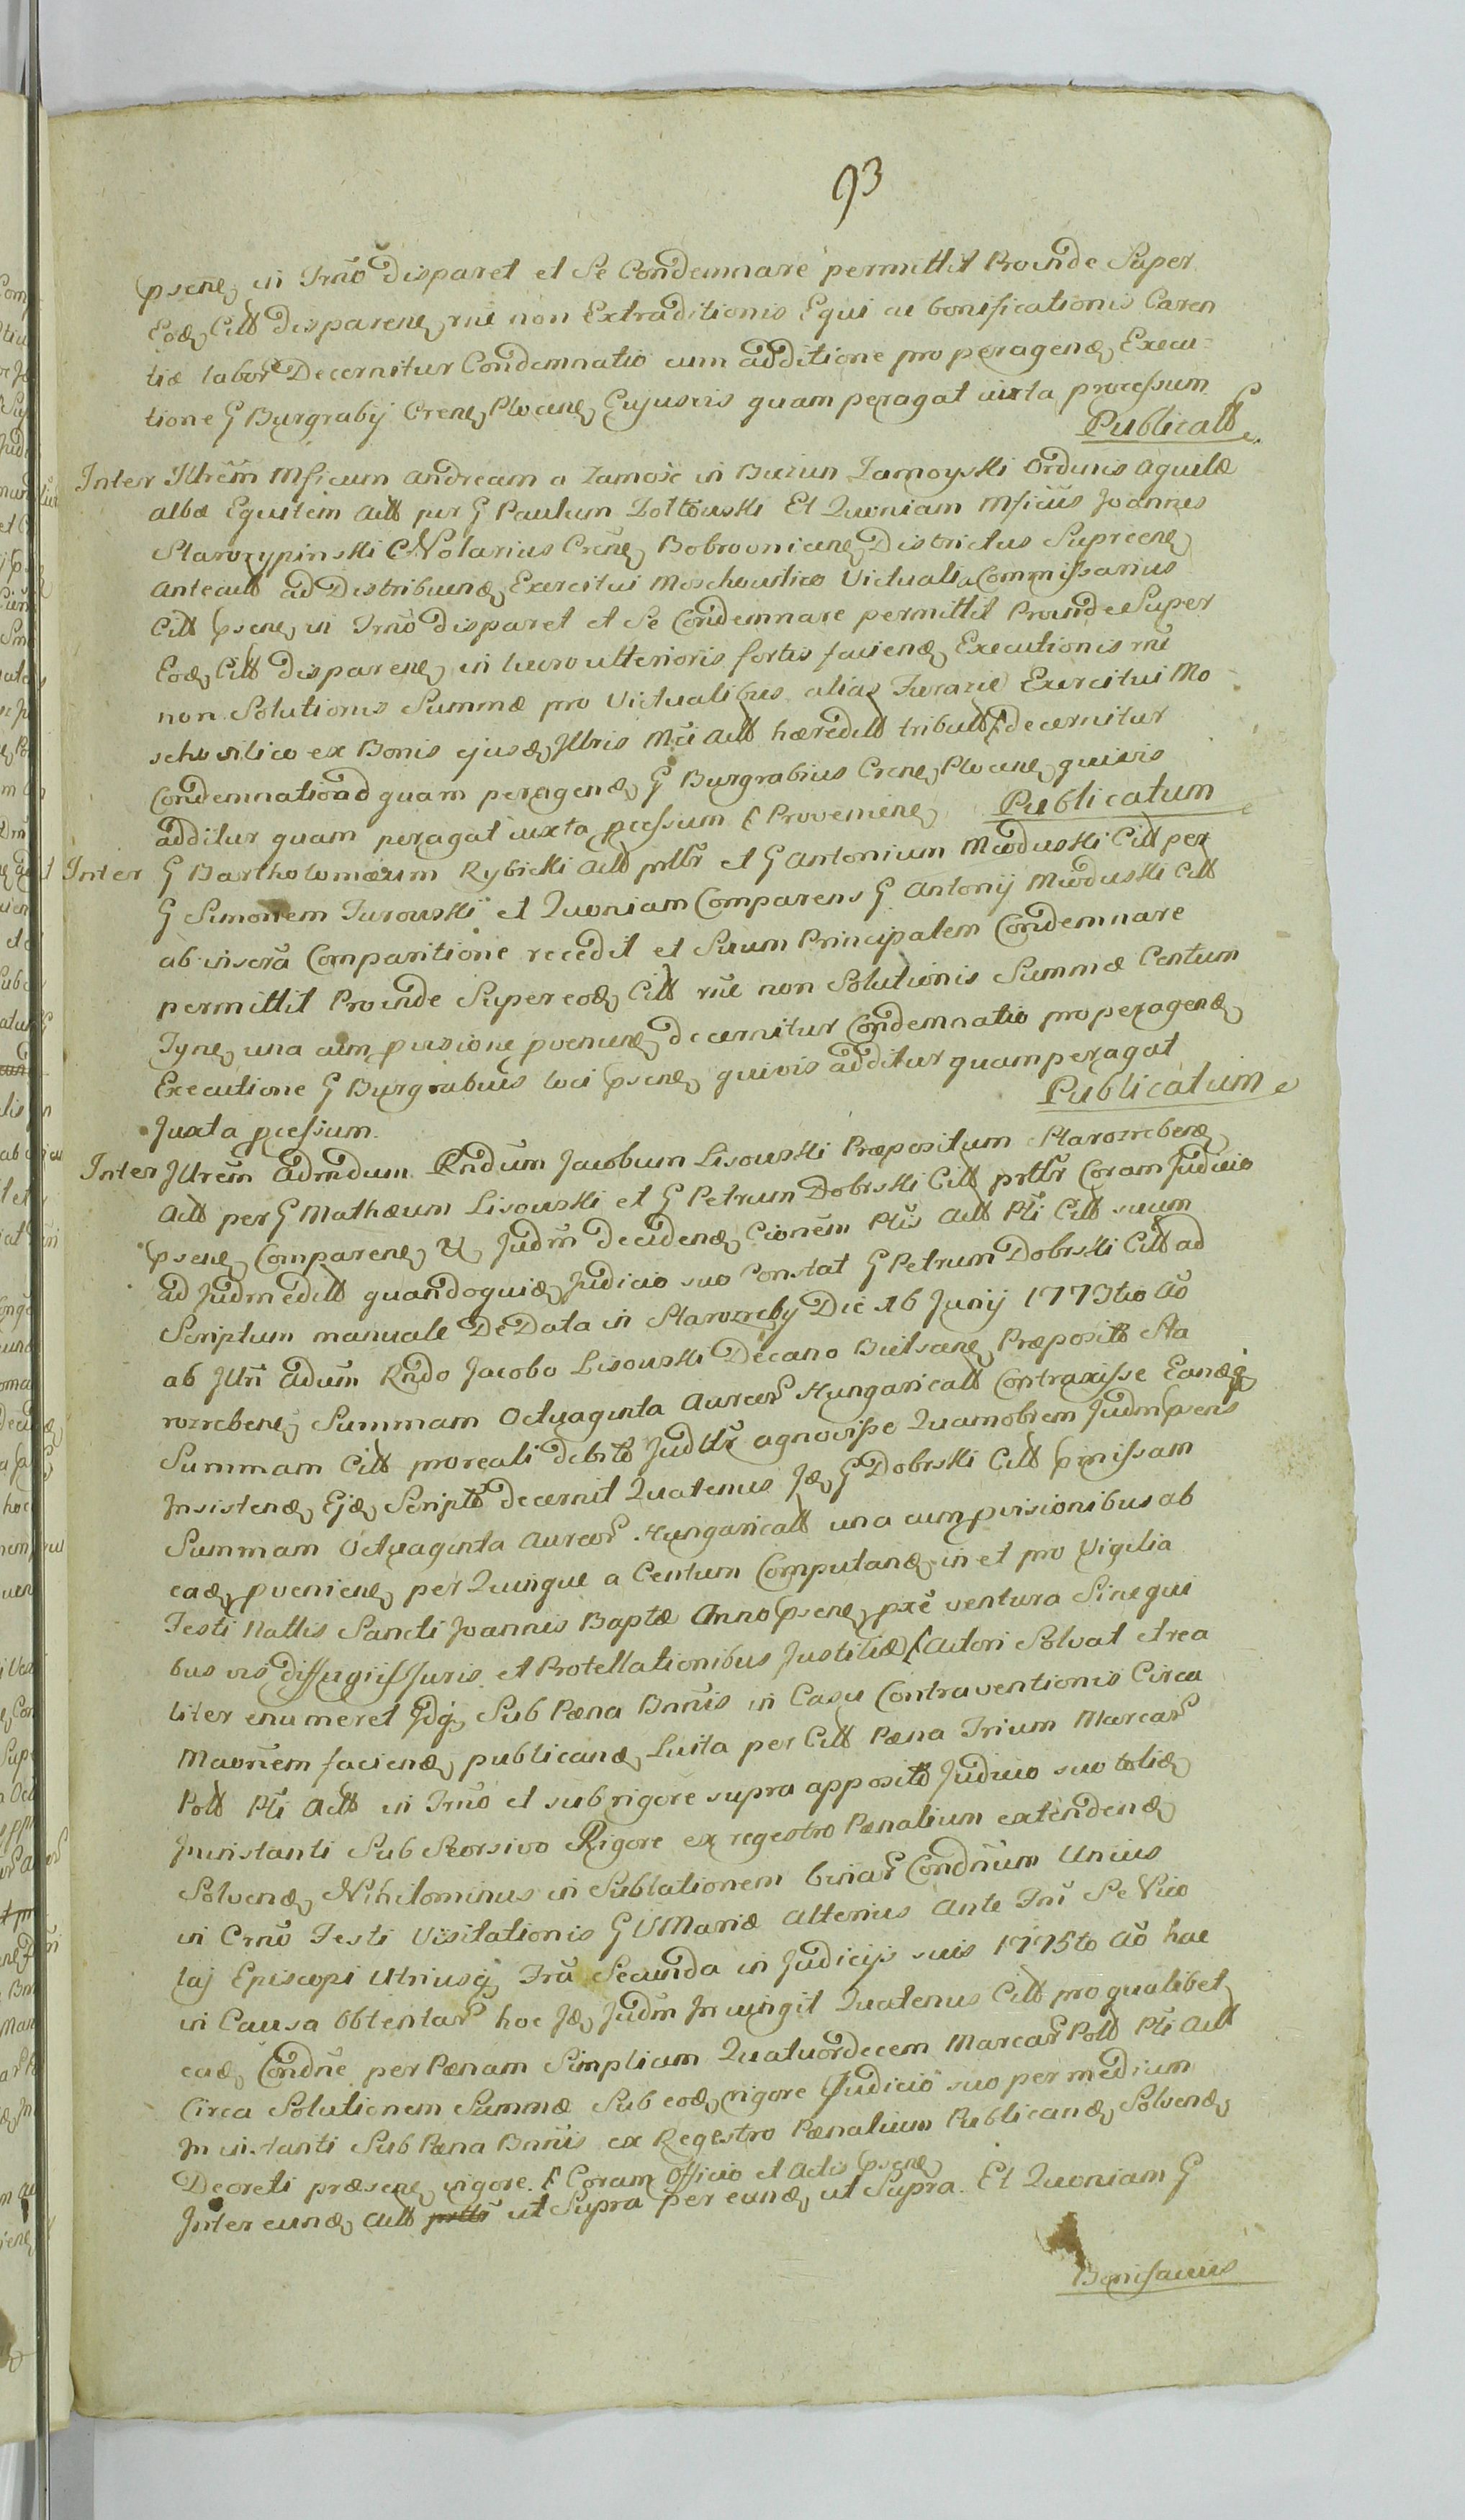 93
psene in Trno disparet et Se Condemnare permittit Proinde Super
Eod Citt disparene rne non Extraditionis Equi ac bonificationis Caren
tiæ labor Decernitur Condemnatio cum additione pro peragena Execu=
tione G Burgrabij Crene Plocene Cujusvis quam peragat iuxta processum
Publicatt
Inter Illrem Mficum Andream a Zamość in Bieżun Zamoyski Ordinis Aquilæ
albæ Equitem Actt per G Paulum Żołtowski Et Quoniam Mficus Joannes
Starorypinski Notarius Crene Bobrovnicene Districtus Supreene
Anteactt ad Distribuena Exercitui Moschovitico Victualia Commissarius
Citt psene in Trno disparet et Se Condemnare permittit Proinde Super
Eod Citt disparene in lucro ulterioris fortis faciena Executionis rne
non Solutionis Summæ pro Victualibus alias Furazie Exercitui Mo-
schovitico ex Bonis ejusd Illris Mci Actt hæreditt tributt decernitur
Condemnatio ad quam peragena G Burgrabius Crene Plocene quivis
additur quam peragat iuxta pcessum Proveniene Publicatum
Inter G Bartholomæum Rybicki Actt prttr et G Antonium Mioduski Citt per
G Simonem Turowski et Quoniam Comparens G Antonij Mioduski Citt
ab inscra Comparitione recedit et Suum Principalem Condemnare
permittit Proinde Super eod Citt rne non Solutionis Summæ Centum
Tyne una cum pvisione pveniene decernitur Condemnatio pro peragena
Executione G Burgrabius loci psene quivis additur quam peragat
Juxta pcessum. Publicatum
Inter Illrem Admdum Rndum Jacobum Lisowski Præpositum Starozrebene
Actt per G Mathæum Lisowski et G Petrum Dobrski Citt prttr Coram Judicio
psene Comparene Judm decidena Cionem Ptis Actt Pti Citt suum
ad Judm editt quandoquid Judicio suo Constat G Petrum Dobrski Citt ad
Scriptum manuale De Data in Starozreby Die 16 Junij 1773tio Ao
ab Illri Adum Rndo Jacobo Lisowski Decano Bielsane Præposito Sta
rozrebene Summam Octuaginta Aureor Hungaricatt Contraxisse Eandq
Summam Citt pro reali debito Judttr agnovisse Quamobrem Judm psens
Insistena Ejd Scripto decernit Quatenus Jd G Dobrski Citt pmissam
Summam Octuaginta Aureor Hungaricatt una cum pvisionibus ab
ead pveniene per Quinque a Centum Computana in et pro Vigilia
Festi Nattis Sancti Joannis Baptæ Anno psene pxe ventura Sine qui
bus vis diffugiis Juris et Protellationibus Justitiæ Actori Solvat et rea
liter enumeret Idq Sub Pæna Bnnis in Casu Contraventionis Circa
Maonem faciena publicana Luita per Citt Pæna Trium Marcar
Pott Pti Actt in Trno et sub rigore supra apposito Judicio suo totid
Ininstanti Sub Seorsivo Rigore ex regestro Pænalium extendena
Solvena Nihilominus in Sublationem binar Condnum Unius
in Crno Festi Visitationis G V Mariæ Alterius Ante Fni Se Nico
laj Episcopi Utriusq Tra Secunda in Judicijs suis 1775to Ao hac
in Causa Obtentar hoc Jd Judm Injungit Quatenus Citt pro qualibet
ead Condne per Pænam Simplicum Quatuordecem Marcar Pott Pti Actt
Circa Solutionem Summæ Sub eod rigore Judicio suo per medium
In instanti Sub Pæna Bnnis ex Regestro Pænalium Publicana Solvena
Decreti præsene vigore. Coram Officio et Actis psene
Inter euna Actt prttr ut Supra per euna ut Supra Et Quoniam G
Bonifacius